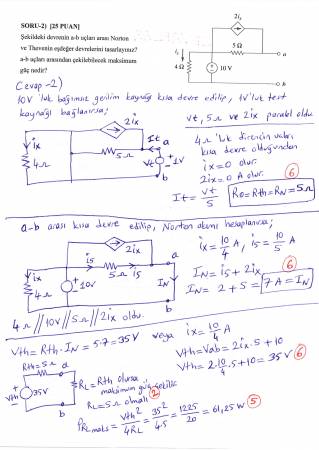 SORU-2) [25 PUAN]
Şekildeki devrenin a-b uçları arası Norton
ve Thevenin eşdeğer devrelerini tasarlayınız?
a-b uçları arasından çekilebilecek maksimum
güç nedir?
2ix
5 Ω
a
ix
4 Ω
10 V
b
Cevap-2)
10V'luk bağımsız gerilim kaynağı kısa devre edilip, 1V'luk test
kaynağı bağlanırsa;
Vt, 5Ω ve 2ix paralel oldu
2ix
It
a
ix
4Ω
5Ω
Vt
1V
b
4Ω'luk direncin uçları
kısa devre olduğundan
ix=0 olur.
2ix=0 A olur.
6
It = Vt/5
Ro=Rth=RN=5Ω
a-b arası kısa devre edilip, Norton akımı hesaplanırsa;
ix=10/4 A, i5=10/5 A
IN = i5 + 2ix
6
IN = 2 + 5 = 7A = IN
2ix
a
ix
i5
5Ω
i5
4Ω
10V
IN
b
4Ω//10V//5Ω//2ix oldu.
Vth = Rth.IN = 5.7 = 35V
veya ix=10/4
Vth=Vab=2ix.5+10
Vth=2.10/4.5+10=35V
6
Rth=5Ω
a
Vth
35V
b
RL=Rth olursa
maksimum güç çekilir
RL=5Ω olmalı
2
PRLmaks = Vth²/4RL = 35²/4.5 = 1225/20 = 61,25 W
5